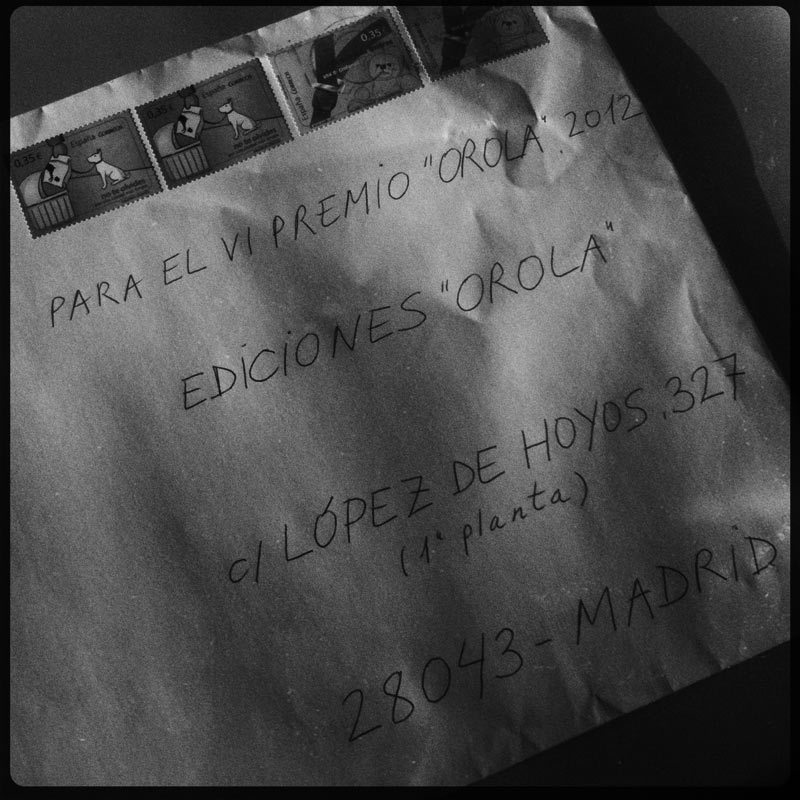 0,35 € España CORREOS
0,35 € España CORREOS
0,35 € España CORREOS
no lo olvides
no lo olvides
PARA EL VI PREMIO "OROLA". 2012
EDICIONES "OROLA"
c/ LÓPEZ DE HOYOS, 327
(1ª planta)
28043 - MADRID